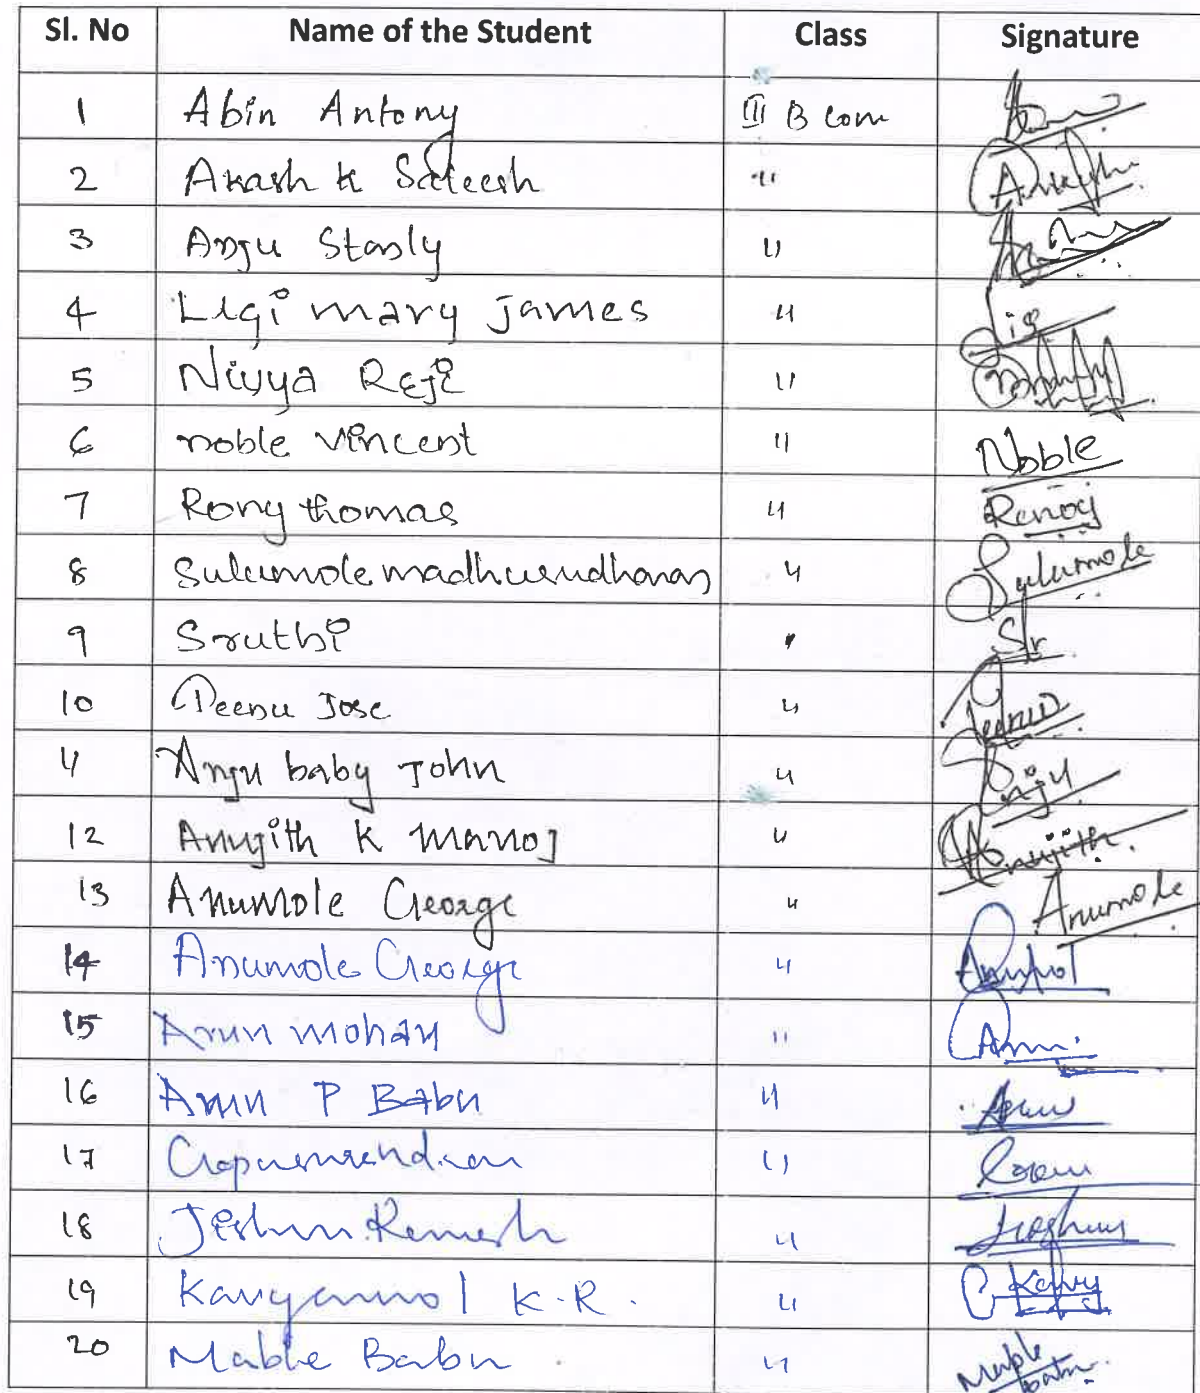 Sl. No Name of the Student Class Signature
1 Abin Antony III B com
2 Akash K Sateesh "
3 Anju Stanly " 
4 Ligi mary James " Lig
5 Nivya Reji "
6 noble vincent " Noble
7 Rony thomas "
8 Sulumole madhusudhanan " Sulumole
9 Sruthi " Sr
10 Deenu Jose "
11 Anju baby John " Anju
12 Anujith K Manoj " Anujith
13 Anumole George " Anumole
14 Anumole George "
15 Arun mohan "
16 Arun P Babu " Arun
17 "
18 Jishnu Remesh "
19 Kanyamol K.R. "
20 Mable Babu . " Mable babu